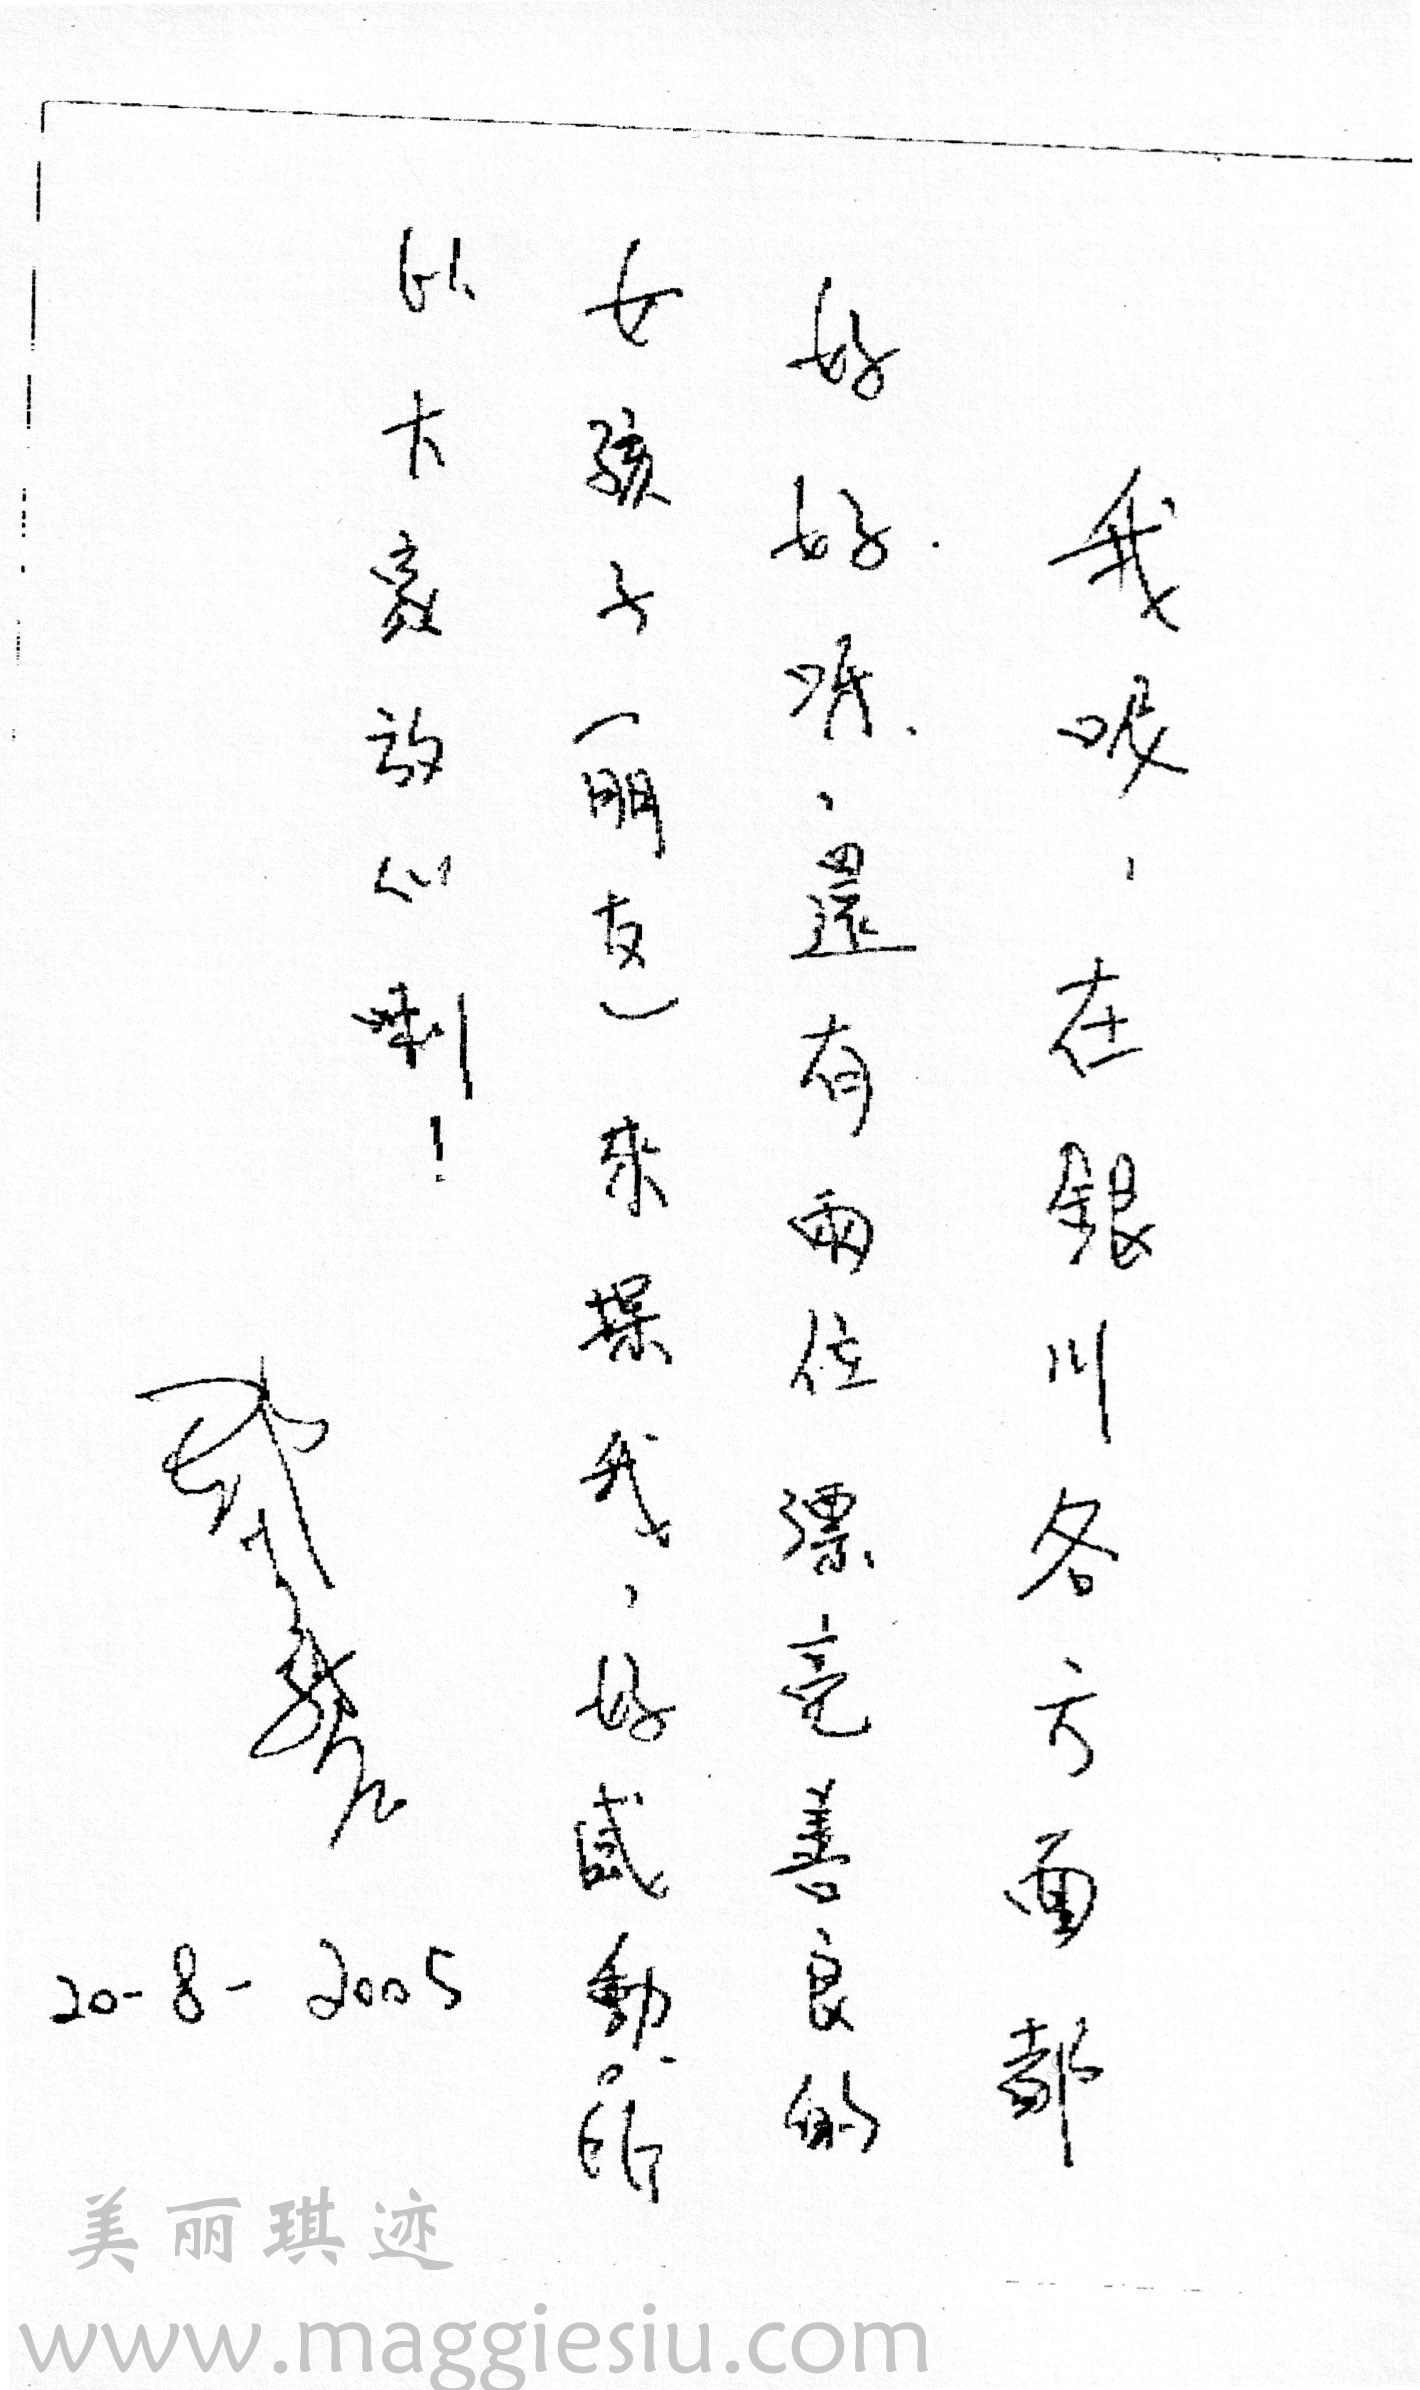 我哋，在銀川各方面都
好好．呀．，還有兩位漂亮善良的
女孩子（朋友）來探我，好感動。所
以大家放心喇！
20-8-2005
美丽琪迹
www.maggiesiu.com